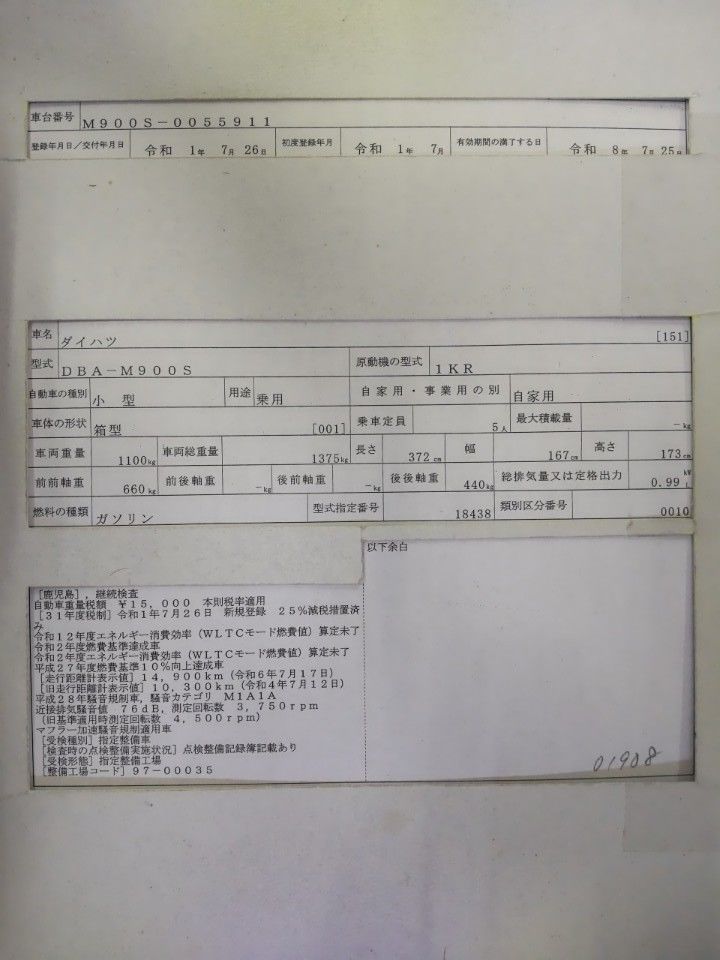 車台番号 M900S-0055911
登録年月日/交付年月日 令和 1年 7月 26日 初度登録年月 令和 1年 7月 有効期間の満了する日 令和 8年 7月 25日
車名 ダイハツ [151]
型式 DBA-M900S 原動機の型式 1KR
自動車の種別 小型 用途 乗用 自家用・事業用の別 自家用
車体の形状 箱型 [001] 乗車定員 5人 最大積載量 -kg
車両重量 1100kg 車両総重量 1375kg 長さ 372cm 幅 167cm 高さ 173cm
前前軸重 660kg 前後軸重 -kg 後前軸重 -kg 後後軸重 440kg 総排気量又は定格出力 0.99 kW L
燃料の種類 ガソリン 型式指定番号 18438 類別区分番号 0010
以下余白
[鹿児島],継続検査
自動車重量税額 ¥15,000 本則税率適用
[31年度税制]令和1年7月26日 新規登録 25%減税措置済
み
令和12年度エネルギー消費効率(WLTCモード燃費値)算定未了
令和2年度燃費基準達成車
令和2年度エネルギー消費効率(WLTCモード燃費値)算定未了
平成27年度燃費基準10%向上達成車
[走行距離計表示値]14,900km(令和6年7月17日)
[旧走行距離計表示値]10,300km(令和4年7月12日)
平成28年騒音規制車,騒音カテゴリ M1A1A
近接排気騒音値 76dB,測定回転数 3,750rpm
(旧基準適用時測定回転数 4,500rpm)
マフラー加速騒音規制適用車
[受検種別]指定整備車
[検査時の点検整備実施状況]点検整備記録簿記載あり
[受検形態]指定整備工場
[整備工場コード]97-00035
01908